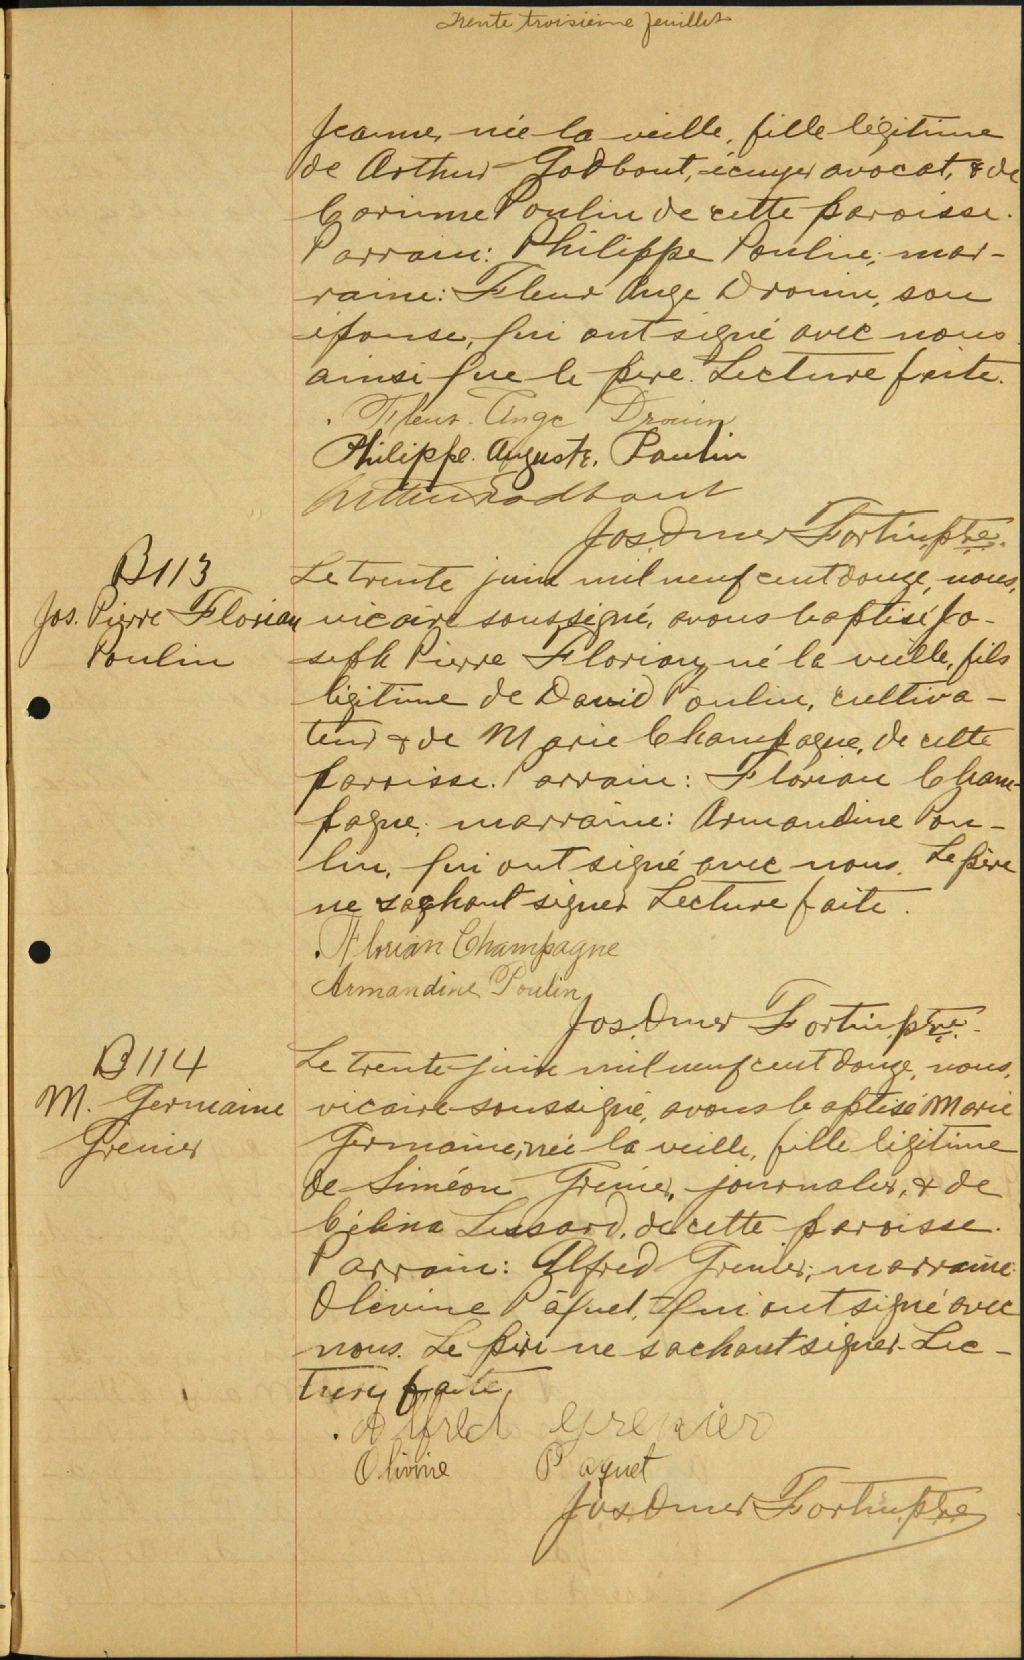 Trente troisième feuillet
Jeanne, née la veille, fille légitime
de Arthur Godbout, écuyer avocat, & de
Corinne Poulin de cette paroisse.
Parrain: Philippe Poulin; mar-
raine: Fleur Ange Drouin, son
épouse, qui ont signé avec nous
ainsi que le père. Lecture faite.
Fleur-Ange Drouin
Philippe. Auguste. Poulin
Arthur Godbout
Jos. Omer Fortin, ptre.
B113
Jos. Pierre Florian
Poulin
Le trente juin mil neuf cent douze, nous,
vicaire soussigné, avons baptisé Jo-
seph Pierre Florian, né la veille, fils
légitime de David Poulin, cultiva-
teur & de Marie Champagne, de cette
paroisse. Parrain: Florian Cham-
pagne; marraine: Armandine Pou-
lin, qui ont signé avec nous. Le père
ne sachant signer Lecture faite.
Florian Champagne
Armandine Poulin
Jos. Omer Fortin, ptre.
B114
M. Germaine
Grenier
Le trente juin mil neuf cent douze, nous,
vicaire soussigné, avons baptisé Marie
Germaine, née la veille, fille légitime
de Siméon Grenier, journalier, & de
Célina Lessard, de cette paroisse.
Parrain: Alfred Grenier; marraine:
Olivine Pâquet, qui ont signé avec
nous. Le père ne sachant signer. Lec-
ture faite.
Alfred Grenier
Olivine Paquet
Jos. Omer Fortin, ptre